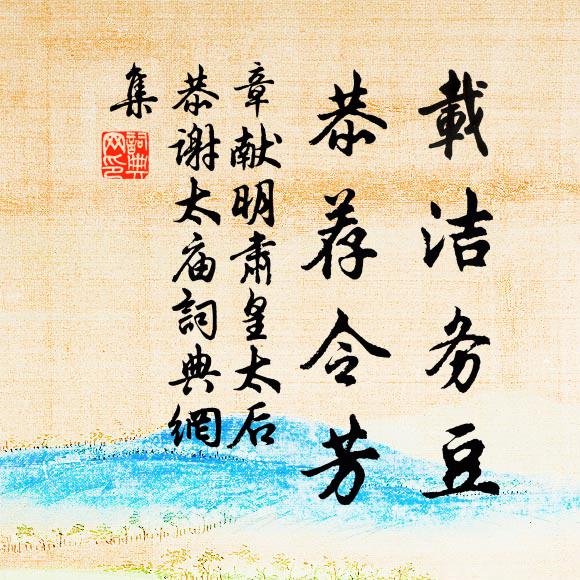 載洁务豆
恭荐令芳
章献明肅皇太后
恭谢太庙詞典網
集
詞典
网印